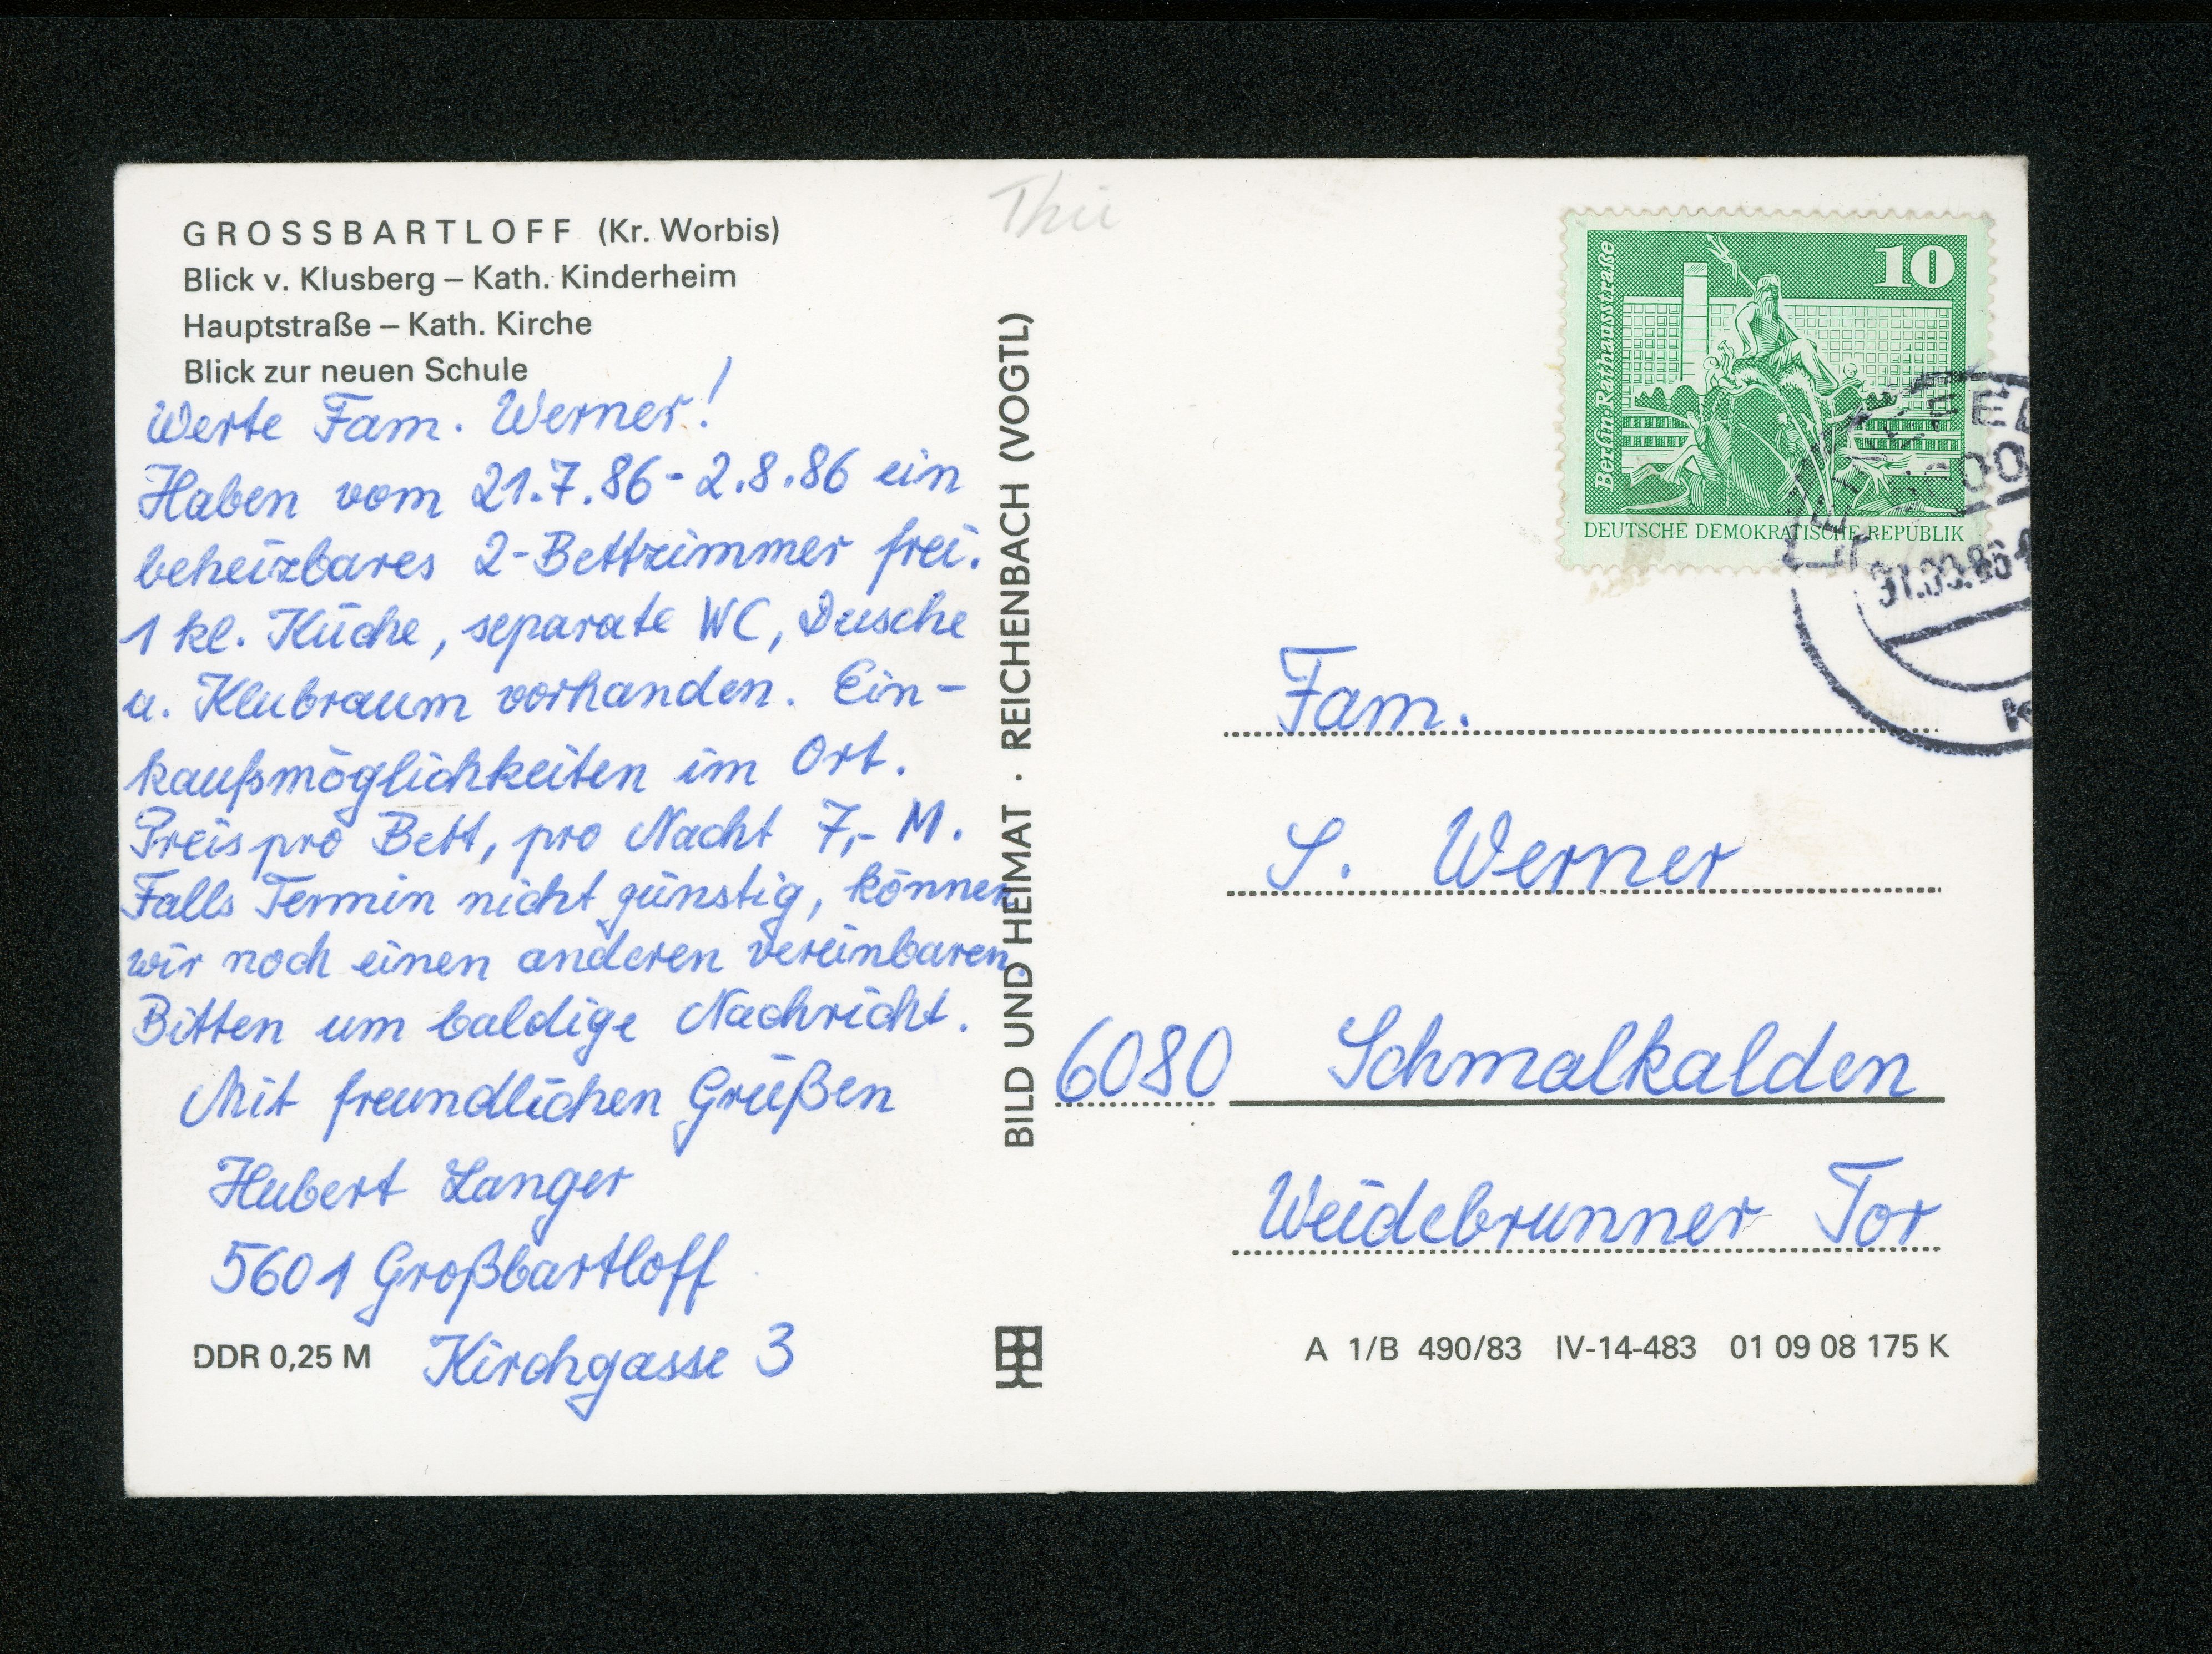 GROSSBARTLOFF (Kr. Worbis)
Blick v. Klusberg – Kath. Kinderheim
Hauptstraße – Kath. Kirche
Blick zur neuen Schule
Werte Fam. Werner!
Haben vom 21.7.86 - 2.8.86 ein
beheizbares 2-Bettzimmer frei.
1 kl. Küche, separate WC, Dusche
u. Klubraum vorhanden. Ein-
kaufsmöglichkeiten im Ort.
Preis pro Bett, pro Nacht 7,- M.
Falls Termin nicht günstig, können
wir noch einen anderen vereinbaren.
Bitten um baldige Nachricht.
Mit freundlichen Grüßen
Hubert Langer
5601 Großbartloff
Kirchgasse 3
DDR 0,25 M
BILD UND HEIMAT · REICHENBACH (VOGTL)
Thü
10
Berlin-Rathausstraße
DEUTSCHE DEMOKRATISCHE REPUBLIK
Fam.
S. Werner
6080 Schmalkalden
Weidebrunner Tor
A 1/B 490/83 IV-14-483 01 09 08 175 K